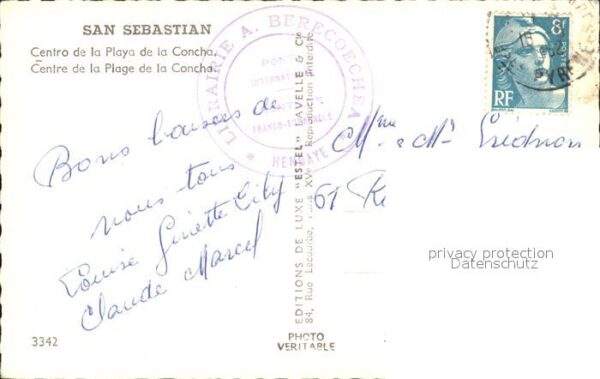 SAN SEBASTIAN
Centro de la Playa de la Concha.
Centre de la Plage de la Concha.
LIBRAIRIE A. BERECOECHEA
PONT
INTERNATIONAL
FRANCO-ESPAGNOLE
* HENDAYE *
8f
RF
Bons baisers de
nous tous
Louise Ginette Lily
Claude Marcel
Mme & Mr
61
EDITIONS DE LUXE "ESTEL" LAVELLE & Cie
84, Rue Lecourbe, Paris XVe Reproduction interdite
privacy protection
Datenschutz
3342
PHOTO
VERITABLE